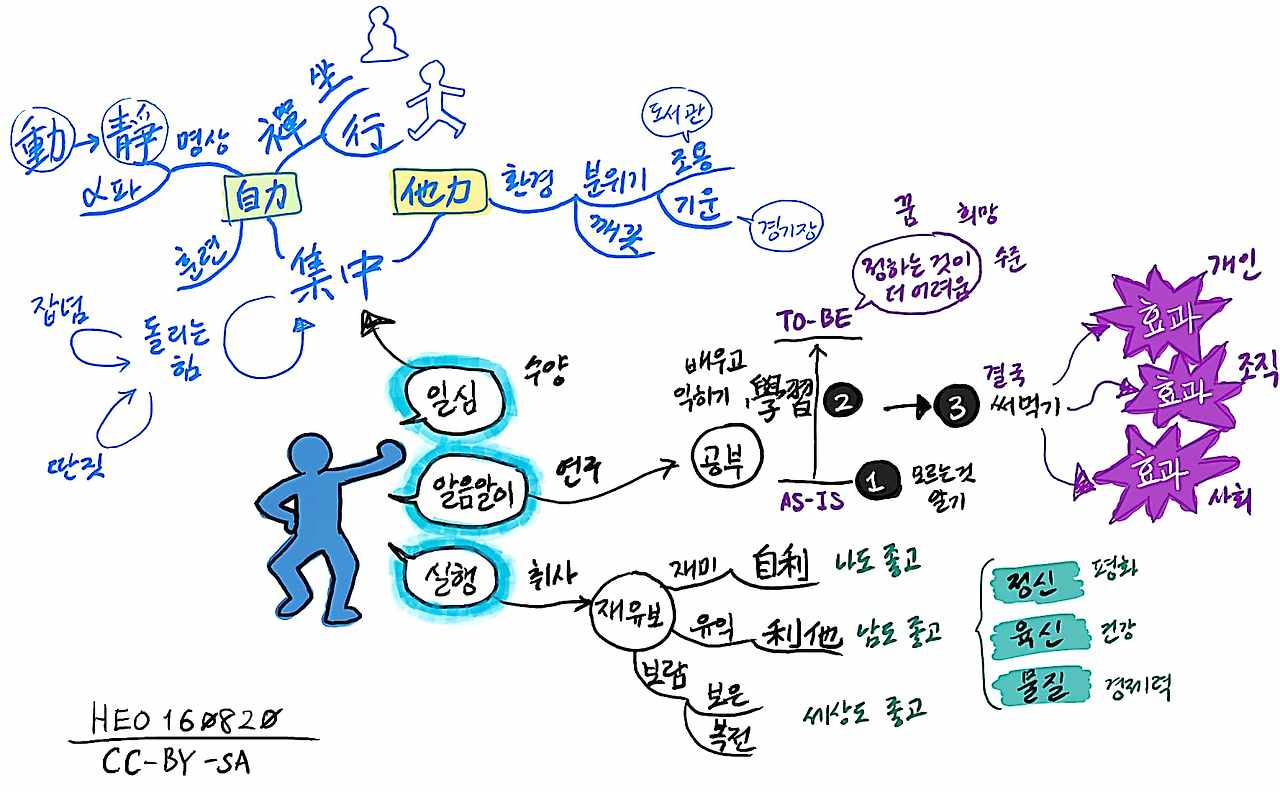 坐
禪
行
動
靜
명상
α파
自力
훈련
他力
환경
분위기
도서관
조용
기운
경기장
깨끗
集中
잡념
돌리는
힘
딴짓
일심
수양
알음알이
연구
공부
실행
취사
배우고
익히기
學習
꿈
희망
수준
정하는 것이
더 어려움
TO-BE
2
AS-IS
1
모르는것
알기
3
결국
써먹기
효과
개인
효과
조직
효과
사회
재유보
재미
自利
나도 좋고
유익
利他
남도 좋고
보람
보은
복전
세상도 좋고
정신
평화
육신
건강
물질
경제력
HEO 160820
CC-BY-SA